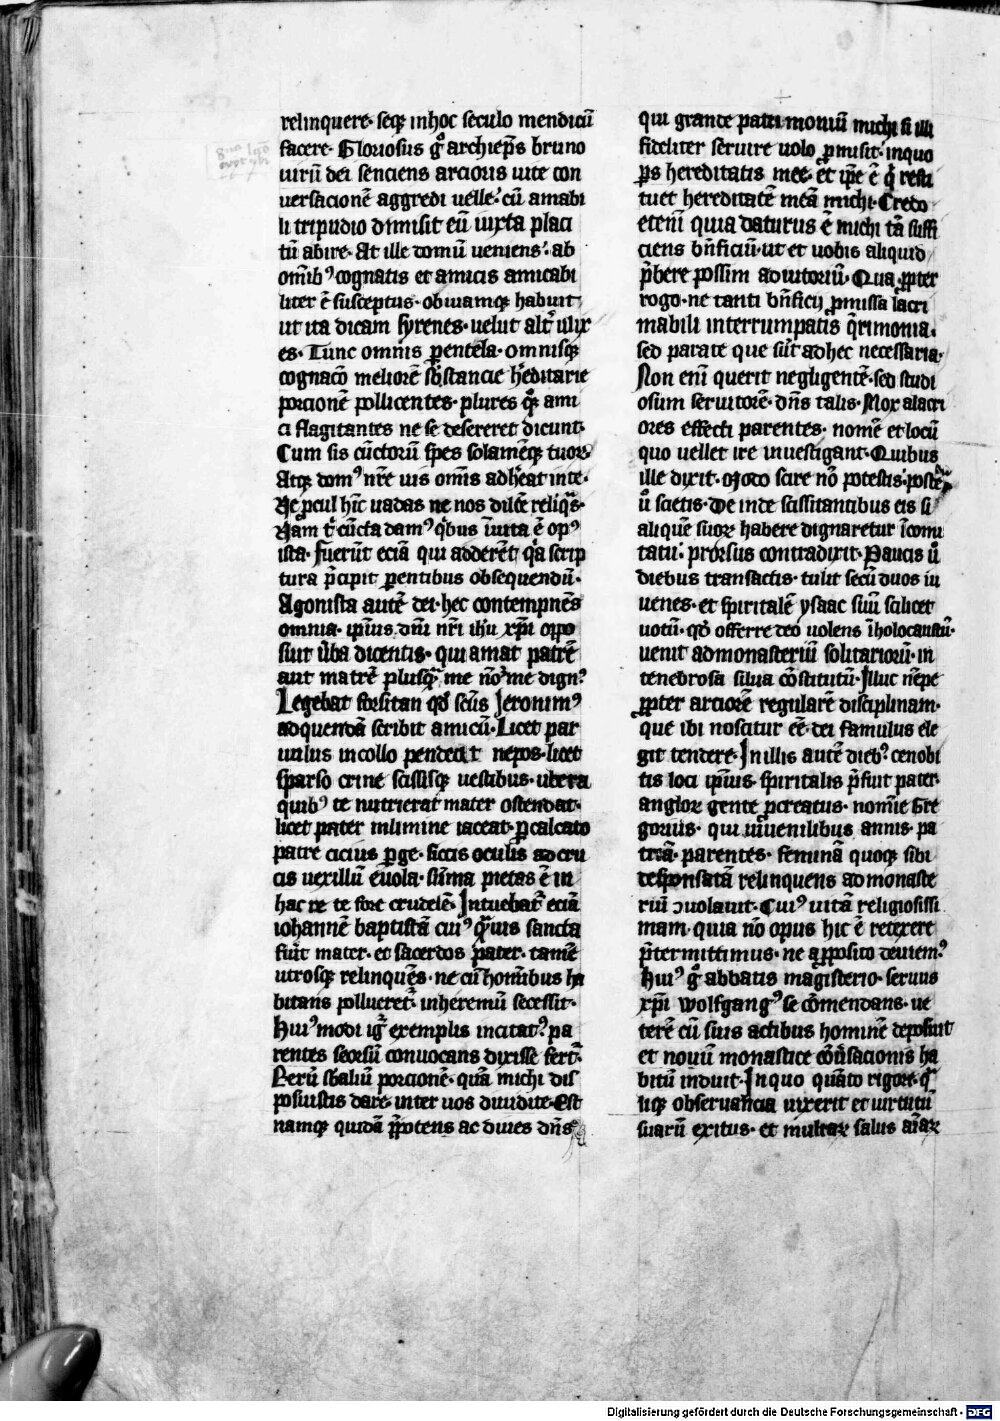 8ᵃ lco
relinquere· seqꝫ inhoc seculo mendicū
facere· Gloriosus gͦ archiep̄s bruno
uirū dei senciens arcioris uite con
uersacionem aggredi uelle: cū amabi
li tripudio dimisit eū iuxta placi
tū abire· At ille domū ueniens: ab
om̄ibꝰ cognatis et amicis amicabi
liter ē susceptus· obuiamqꝫ habuit
ut ita dicam syrenes· uelut alt̄ ulix
es· Tunc omnis ꝑentela· omnisqꝫ
cognac̄o meliorē sb̄stancie h̄editarie
porcionē pollicentes· plures qͦꝫ ami
ci flagitantes ne se desereret dicunt·
Cum sis cūctorū spes solamenqꝫ tuoꝝ
Atqꝫ domꝰ nr̄e uis om̄is adh̄eat inte·
Ne ꝓcul hīc uadas ne nos dilc̄e reliqᵃs·
Nam t̄ cūcta damꝰ qͥbus īuita ē opꝰ
ista· fuerūt eciā qui adderēt qᵃ scrip
tura p̄cipit ꝑentibus obsequendū·
Agonista autē dei· hec contempnēs
omnia· ipīus dn̄i nr̄i ih̄u xp̄i oppo
suit ūba dicentis· qui amat patrē
aut matrē plusqᵃ me nō ē me dignꝰ
Legebat forsitan qd̄ sc̄us Jeronimꝰ
adquendā scribit amicū· Licet par
uulus incollo pendeat nepos· licet
sparso crine scissisqꝫ uestibus· ubera
quibꝰ te nutrierat mater ostendat·
licet pater inlimine iaceat· ꝑcalcato
patre cicius ꝑge· siccis oculis ad cru
cis uexillū euola· sūma pietas ē in
hac re te fore crudelē· Intuebat̄ eciā
iohannē baptistā cuiꝰ qᵃuis sancta
fuīt mater· et sacerdos pater· tamē
utrosqꝫ relinquēs· ne cū hoīnibus ha
bitans pollueret̄· inheremū secessit·
Huiꝰmodi igͥ exemplis incitatꝰ pa
rentes seorsū conuocans dixisse fert̄·
Rerū sb̄aliū porcionē· quā michi dis
posuistis dare· inter uos diuidite· Est
namqꝫ quidā p̄potens ac diues dn̄s
qui grande patrimoniū michi si illi
fideliter seruire uolo ꝓmisit· inquo
ꝑs hereditatis mee· et ip̄e ē qͥ resti
tuet hereditatē meā michi· Credo
etenī quia daturus ē michi tā suffi
ciens bn̄ficiū· ut et uobis aliquid
p̄bere possim adiutoriū· Qua ꝓpter
rogo· ne tanti bn̄ficij ꝓmissa lacri
mabili interrumpatis qͥrimonia·
sed parate que sūt adhec necessaria·
Non enī querit negligentē· sed studi
osum seruitorē· dn̄s talis· Mox alacri
ores effecti parentes· nomē et locū
quo uellet ire inuestigant· Quibus
ille dixit· Modo scire nō potestis· poste
uͦ scietis· De inde scissitantibus eis si
aliquē suoꝝ habere dignaretur īcomi
tatū: prorsus contradixit· Paucis uͦ
diebus transactis· tulit secū duos iu
uenes· et spiritalē ysaac suū scilicet
uotū· qd̄ offerre deo uolens īholocaustū·
uenit admonasteriū solitariorū· in
tenebrosa silua cōstitutū· Illuc nēpe
ꝓpter arciorē regularē disciplinam·
que ibi noscitur eē· dei famulus ele
git tendere· In illis autē diebꝰ cenobi
tis loci ipīus· spiritalis p̄fuit pater·
angloꝝ gente ꝓcreatus· nomīe Gre
gorius· qui īiuuenilibus annis· pa
triā· parentes· feminā quoqꝫ sibi
desponsatā relinquens admonaste
riū ↄuolauit· Cuiꝰ uitā religiosissi
mam· quia nō opus hic ē retexere
p̄termittimus· ne a ꝓposito deuiemꝰ
Huiꝰ gͦ abbatis magisterio· seruus
xp̄i wolfgangꝰ se cōmendans· ue
terē cū suis actibus hominē deposuit
et nouū monastice cōūsacionis ha
bitū induit· In quo quāto rigore· qᵃ
liqꝫ obseruancia uixerit et uirtutū
suarū exitus· et multaꝝ salus aīaꝝ
Digitalisierung gefördert durch die Deutsche Forschungsgemeinschaft - DFG